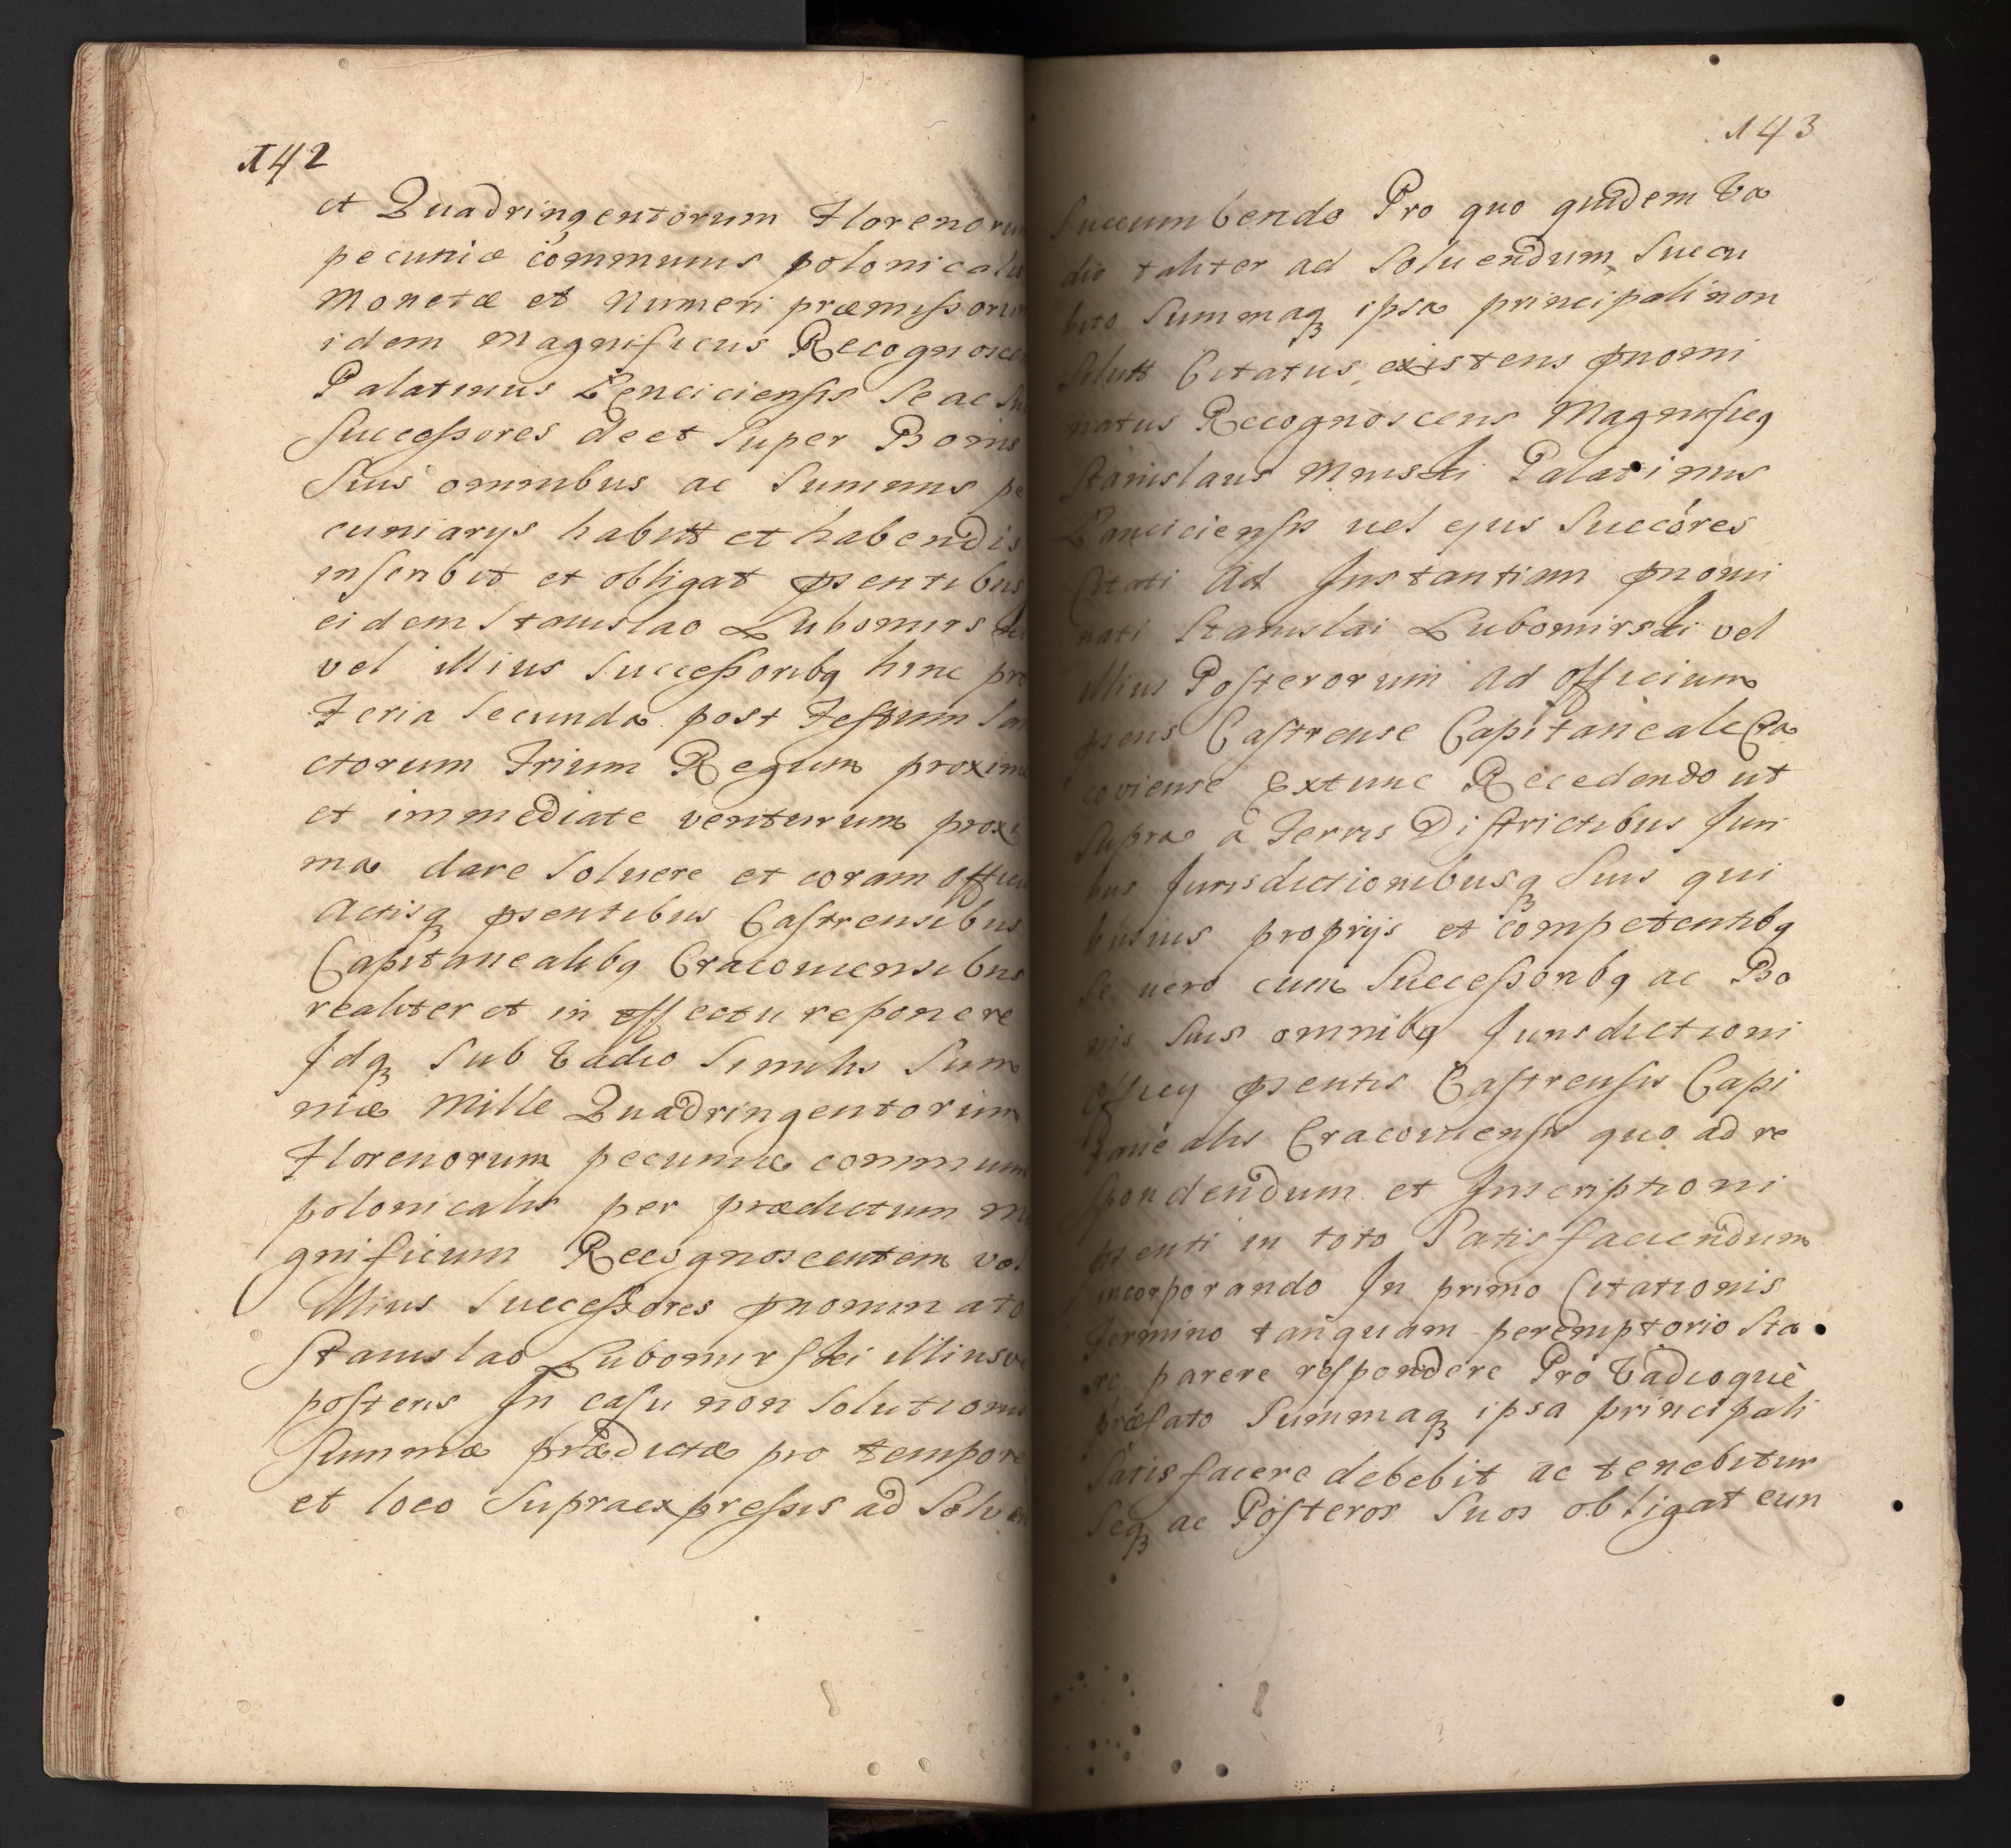 142
et Quadringentorum Florenorum
pecuniæ communis polonicalis
Monetæ et Numeri præmissorum
idem Magnificus Recognoscen
Palatinus Lenciciensis Se ac Su
Successores de et Super Bonis
Suis omnibus ac Summis pe
cuniarys habitt et habendis
inscribit et obligat pñsentibus
eidem Stanislao Lubomirski
vel illius Successoribq hinc pro
Feria Secunda post Festum San
ctorum Trium Regum proxime
et immediate venturum proxi
ma dare Soluere et coram Officio
Actisq pñsentibus Castrensibus
Capitanealibq Cracouiensibus
realiter et in effectu reponere
Idq Sub Vadio Similis Sum
mæ Mille Quadringentorum
Florenorum pecuniæ communis
polonicalis per prædictum Ma
gnificum Recognoscentem vel
illius Successores pnominato
Stanislao Lubomirski illiusve
posteris In casu non Solutionis
Summæ prædictæ pro tempore
et loco Supraexpressis ad Solven
143
Succumbendo Pro quo quidem Va
dio taliter ad Soluendum Succu
bito Summaq ipsa principali non
Solutt Citatus existens pnomi
natus Recognoscens Magnificq
Stanislaus Minski Palatinus
Lanciciensis uel ejus Succóres
Citati Ad Instantiam pnomi
nati Stanislai Lubomirski vel
illius Posterorum Ad Officium
pñsens Castrense Capitaneale Cra
coviense Extunc Recedendo ut
Supra a Terris Districtibus Juri
bus Jurisdictionibusq Suis qui
busuis proprijs et competentibq
Se uero cum Successoribq ac Bo
nis Suis omnibq Jurisdictioni
Officy pñsentis Castrensis Capi
tanealis Cracouiensis quo ad re
spondendum et Inscriptioni
pñsenti in toto Satisfaciendum
incorporando In primo Citationis
Termino tanquam peremptorio Sta
re parere respondere Pro Vadioque
præfato Summaq ipsa principali
Satisfacere debebit ac tenebitur
Seq ac Posteros Suos obligat cun